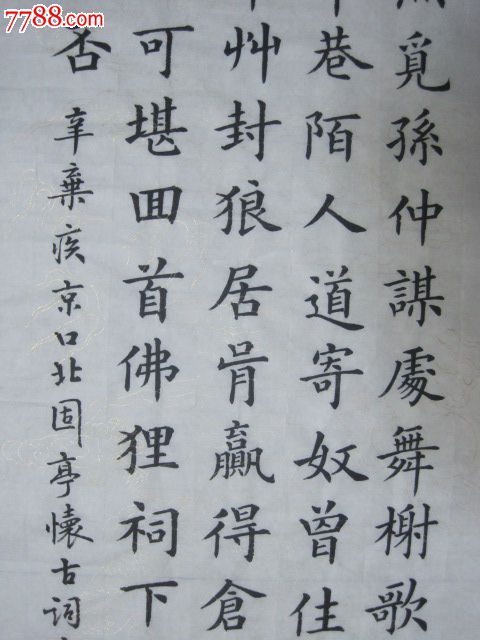 覓孫仲謀處舞榭歌
巷陌人道寄奴曾住
艸封狼居胥贏得倉
可堪囬首佛狸祠下
否 辛棄疾京口北固亭懷古詞
7788.com